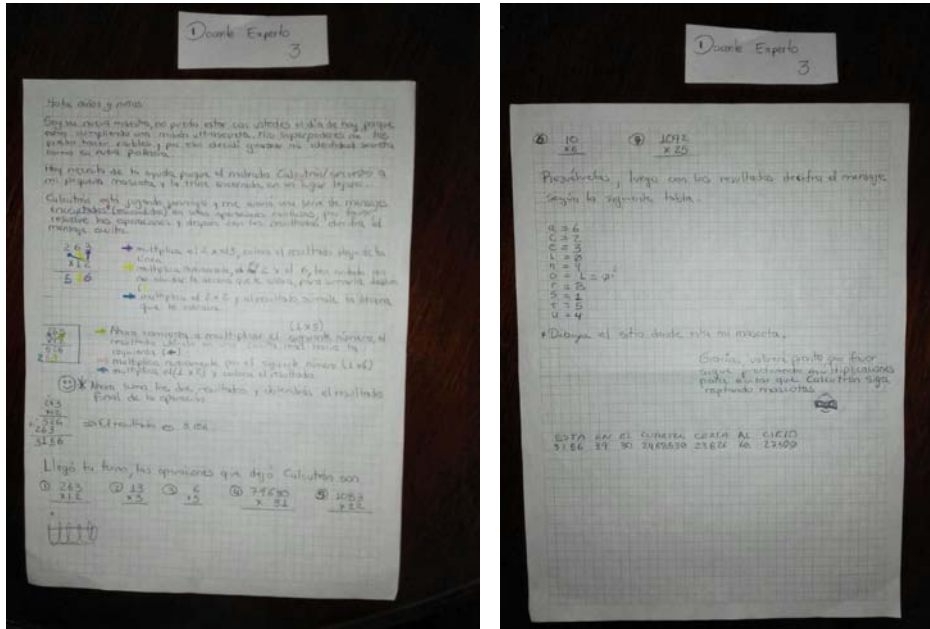 ① Docente Experto
3
Hola niños y niñas
Soy su nueva maestra, no puedo estar con ustedes el día de hoy, porque
estoy cumpliendo una misión ultrasecreta. Mis superpoderes no los
puedo hacer visibles y por eso decidí guardar mi identidad secreta
como su nueva profesora.
Hoy necesito de tu ayuda porque el malvado Calcutrón secuestró a
mi pequeña mascota y la tiene encerrada en un lugar lejano...
Calcutrón está jugando conmigo y me envió una serie de mensajes
encriptados (escondidos) en unas operaciones
resuelve las operaciones y después con los resultados descifra el
mensaje oculto.
263
x12
526
multiplica el 2 x 3, coloca el resultado abajo de la
línea
multiplica nuevamente, el 2 x el 6, ten cuidado por
no olvidar la decena que te sobra, para sumarla después
multiplica el 2 x 2 y al resultado súmale la decena
que te sobraba.
263
526
(1x3)
Ahora comienza a multiplicar el siguiente número, el
resultado
izquierda
multiplica nuevamente por el siguiente número (1x6)
multiplica el (1x2) y coloca el resultado.
Ahora suma los dos resultados y obtendrás el resultado
final de la operación
263
x12
526
263
3156
El resultado es 3.156
Llegó tu turno, las operaciones que dejó Calcutrón son
① 263 ② 13 ③ 6 ④ 79630 ⑤ 1083
x12 x3 x5 x 31 x22
① Docente Experto
3
⑥ 10
x6
1092
x 25
Resuélvelas, luego con los resultados descifra el mensaje
según la siguiente tabla.
a = 6
e = 3
n = 9
s = 1
t = 5
u = 4
* Dibuja el sitio donde está mi mascota.
Gracias, volveré pronto por favor
sigue practicando multiplicaciones
para evitar que Calcutrón siga
raptando mascotas
ESTA EN EL CERCA AL CIELO
3156 39 30 2468530 23826 60 27300